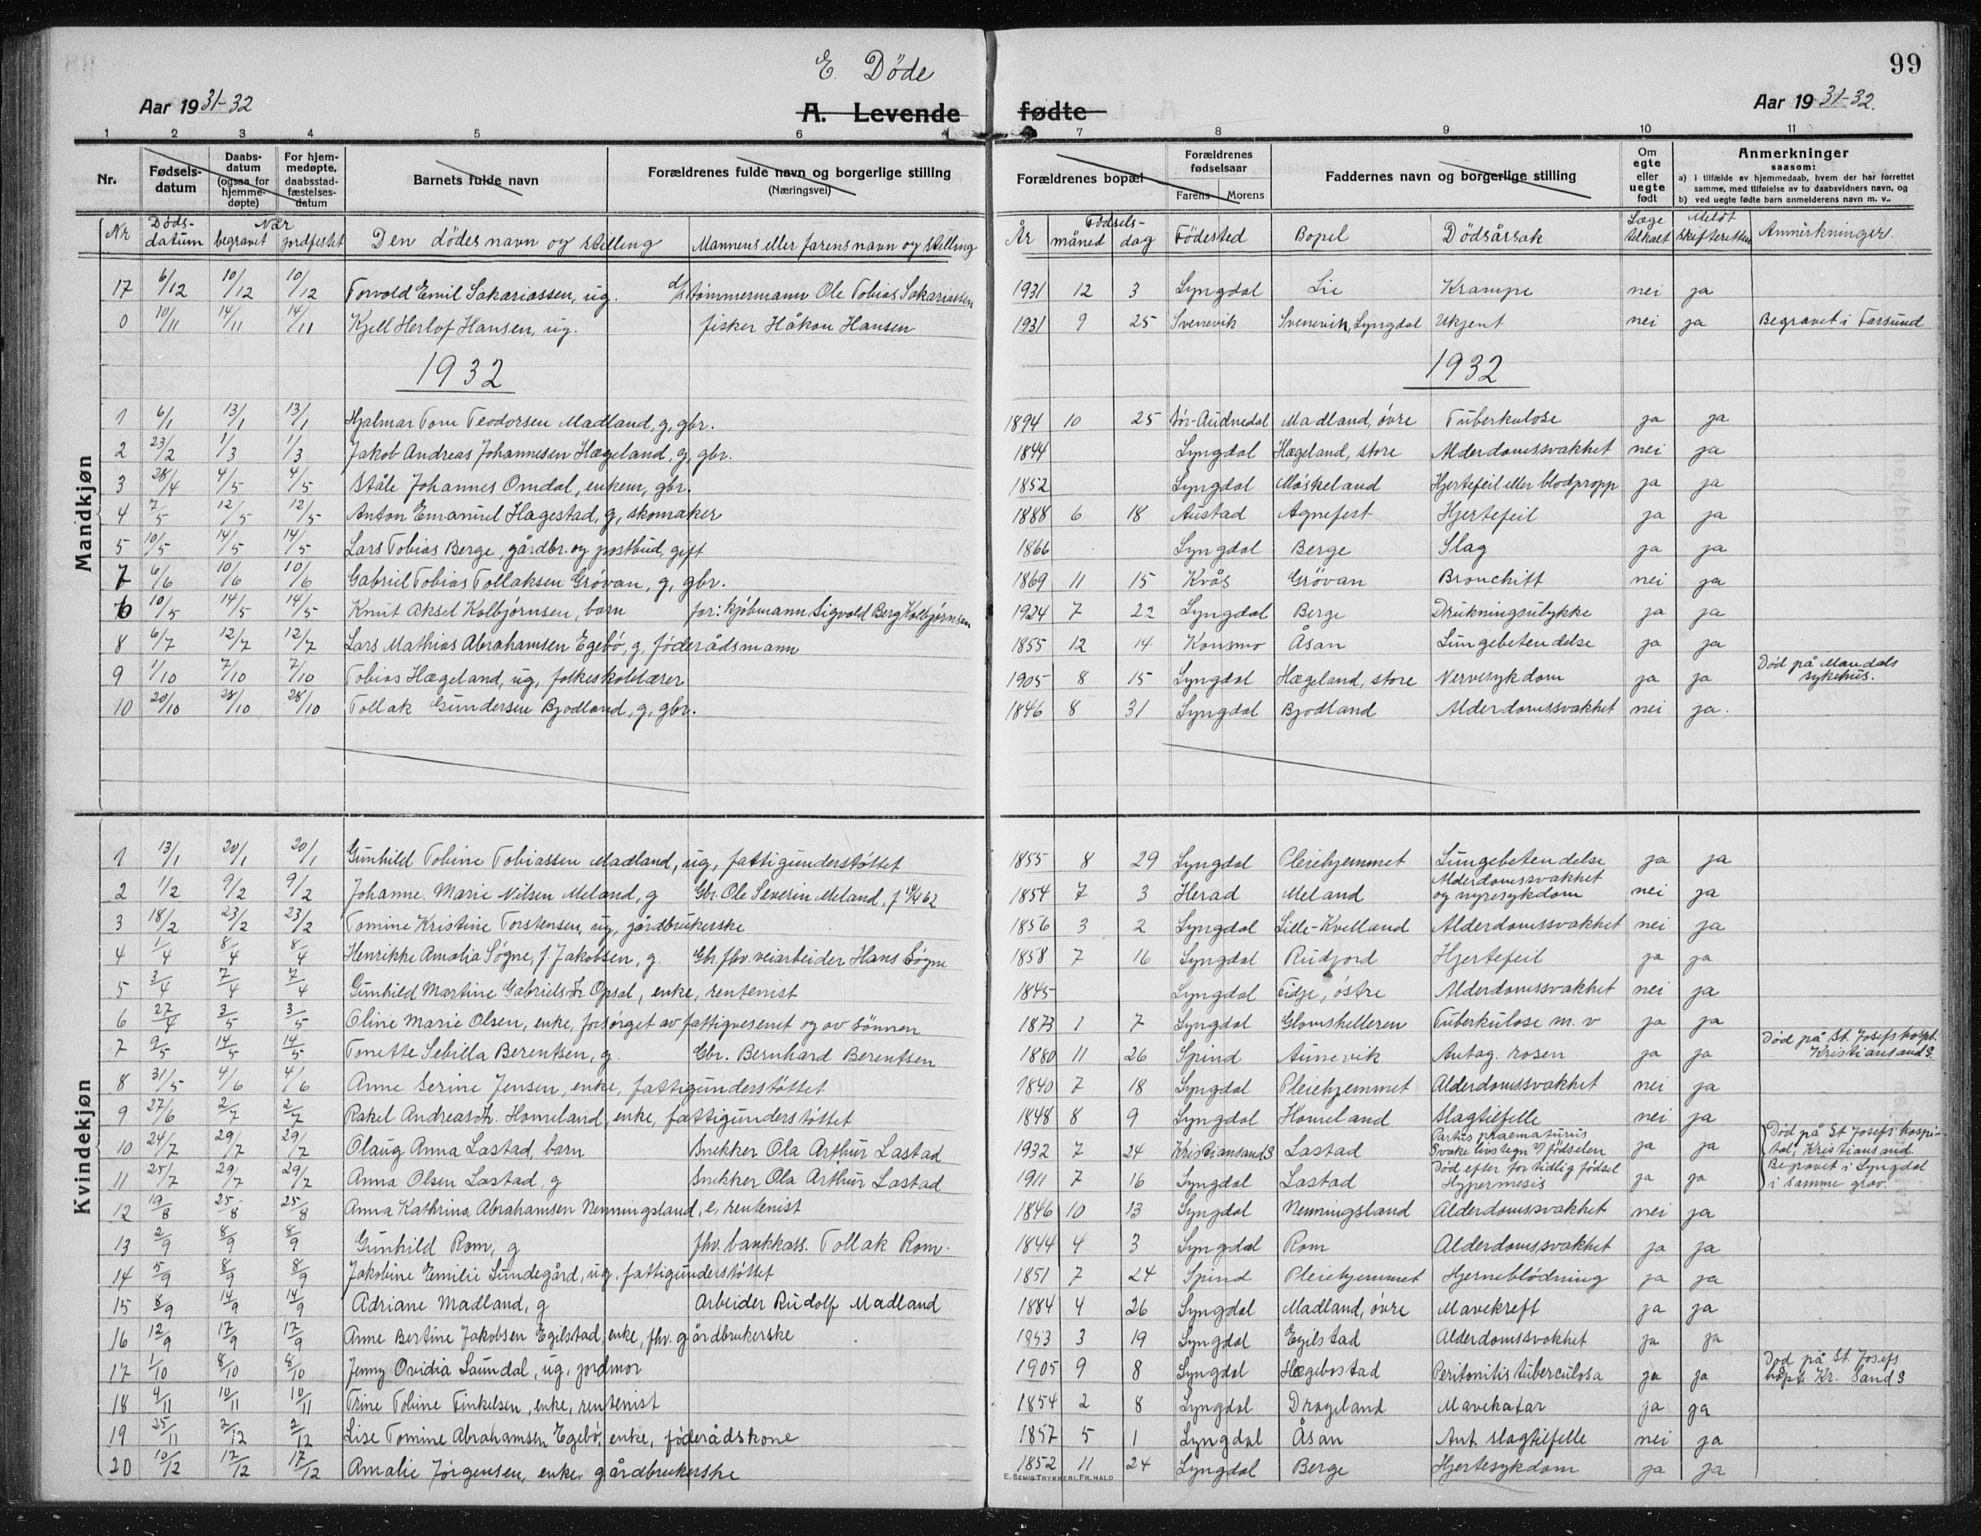 E. Døde
99
Aar 1931-32
A. Levende fødte
Aar 1931-32.
1 2 3 4 5 6 7 8 9 10 11
Nr. Fødsels-datum Daabs-datum (ogsaa for hjemme-døpte) For hjem-medøpte, daabsstad-fæstelses-datum Barnets fulde navn Forældrenes fulde navn og borgerlige stilling (Næringsvei) Forældrenes bopæl Forældrenes fødselsaar Farens Morens Faddernes navn og borgerlige stilling Om egte eller uegte født Anmerkninger saasom: a) i tilfælde av hjemmedaab, hvem der har forrettet samme, med tilføielse av to daabsvidners navn, og b) ved uegte fødte barn anmelderens navn m. v..
Nr Døds-datum Når begravet jordfestet Den dødes navn og stilling Mannens eller farens navn og stilling År Fødsels- måned dag Fødested Bopel Dødsårsak Læge tilkalt Meldt skifteretten Anmerkninger.
17 6/12 10/12 10/12 Torvold Emil Sakariassen, ug. d/s tømmermann Ole Tobias Sakariassen 1931 12 3 Lyngdal Lie Krampe nei ja
0 10/11 14/11 14/11 Kjell Herlof Hansen, ug. fisker Håkon Hansen 1931 9 25 Svenevik Svenevik, Lyngdal Ukjent nei ja Begravet i Farsund
1932 1932
Mandkjøn
1 6/1 13/1 13/1 Hjalmar Tom Teodorsen Madland, g, gbr. 1894 10 25 Sør-Audnedal Madland, øvre Tuberkulose ja ja
2 23/2 1/3 1/3 Jakob Andreas Johannesen Hægeland, g, gbr. 1844 Lyngdal Hægeland, store Alderdomssvakhet nei ja
3 28/4 4/5 4/5 Ståle Johannes Omdal, enkem, gbr. 1852 Lyngdal Møskeland Hjertefeil eller blodpropp ja ja
4 7/5 12/5 12/5 Anton Emanuel Hagestad, g, skomaker 1888 6 18 Austad Agnefest Hjertefeil ja ja
5 10/5 14/5 14/5 Lars Tobias Berge, gårdbr. og postbud, gift 1866 Lyngdal Berge Slag ja ja
7 6/6 10/6 10/6 Gabriel Tobias Tollaksen Grøvan, g, gbr. 1869 11 15 Kvås Grøvan Bronchitt nei ja
6 10/5 14/5 14/5 Knut Aksel Kolbjørnsen, barn far: kjøbmann Sigvald Berg Kolbjørnsen 1924 7 22 Lyngdal Berge Drukningsulykke ja ja
8 6/7 12/7 12/7 Lars Mathias Abrahamsen Egebø, g, føderådsmann 1855 12 14 Konsmo Åsan Lungebetendelse ja ja
9 1/10 7/10 7/10 Tobias Hægeland, ug, folkeskolelærer 1905 8 15 Lyngdal Hægeland, store Nervesykdom ja ja Død på Mandals sykehus.
10 20/10 28/10 28/10 Tollak Gundersen Bjodland, g, gbr. 1846 8 31 Lyngdal Bjodland Alderdomssvakhet nei ja.
Kvindekjøn
1 13/1 20/1 20/1 Gunhild Tobine Tobiassen Madland, ug, fattigunderstøttet 1855 8 29 Lyngdal Pleiehjemmet Lungebetendelse ja ja
2 1/2 9/2 9/2 Johanne Marie Nilsen Meland, g Gbr. Ole Severin Meland, f 1854 7 3 Herad Meland Alderdomssvakhet og nyresykdom nei ja
3 18/2 23/2 23/2 Tomine Kristine Torstensen, ug, gårdbrukerske 1856 3 2 Lyngdal Lille-Kvelland Alderdomssvakhet nei ja
4 1/4 8/4 8/4 Henrikke Amalia Søgne, f. Jakobsen, g. Gbr. fhv. veiarbeider Hans Søgne 1858 7 16 Lyngdal Rudjord Hjertefeil ja ja
5 3/4 7/4 7/4 Gunhild Martine Gabrielsdtr. Opsal, enke, rentenist 1845 Lyngdal Eidje, østre Alderdomssvakhet nei ja
6 27/4 3/5 3/5 Oline Marie Olsen, enke, forsørget av fattigvesenet og av sønnen 1873 1 7 Lyngdal Glomskelleren Tuberkulose m. v ja ja
7 9/5 14/5 14/5 Tonette Sebilla Berentsen, g. Gbr. Bernhard Berentsen 1880 11 26 Spind Aunevik Antag. rosen ja ja Død på St. Josefs hospt. Kristiansand S.
8 31/5 4/6 4/6 Anne Serine Jensen, enke, fattigunderstøttet 1840 7 18 Lyngdal Pleiehjemmet Alderdomssvakhet nei ja
9 27/6 2/7 2/7 Rakel Andreasdtr. Homeland, enke, fattigunderstøttet 1848 8 9 Lyngdal Homeland Slagtilfelle nei ja
10 24/7 29/7 29/7 Olaug Anna Lastad, barn Snekker Ola Arthur Lastad 1932 7 24 Kristiansand S Lastad Partus praematurus Svake livstegn v/ fødselen ja ja Død på St Josefs hospital, Kristiansand
11 25/7 29/7 29/7 Anna Olsen Lastad, g Snekker Ola Arthur Lastad 1911 7 16 Lyngdal Lastad Død efter for tidlig fødsel Hypermesis ja ja Begravet i Lyngdal i samme grav.
12 19/8 25/8 25/8 Anna Kathrine Abrahamsen Nenningsland, e, rentenist 1846 10 13 Lyngdal Nenningsland Alderdomssvakhet nei ja
13 2/9 8/9 8/9 Gunhild Rom, g fhv. bankkass. Tollak Rom. 1844 4 3 Lyngdal Rom Alderdomssvakhet ja ja
14 5/9 8/9 8/9 Jakobine Emilie Lundegård, ug, fattigunderstøttet 1851 7 24 Spind Pleiehjemmet Hjerneblødning ja ja
15 8/9 14/9 14/9 Adriane Madland, g Arbeider Rudolf Madland 1884 4 26 Lyngdal Madland, øvre Mavekreft ja ja
16 12/9 17/9 17/9 Anne Bertine Jakobsen Egilstad, enke, fhv. gårdbrukerske 1853 3 19 Lyngdal Egilstad Alderdomssvakhet ja ja
17 1/10 8/10 8/10 Jenny Ovidia Laundal, ug, jordmor 1905 9 8 Lyngdal Hægebostad Peritonitis tuberculosa ja ja Død på St. Josefs hopt. Kr. Sand S
18 4/11 10/11 10/11 Trine Tobine Finkelsen, enke, rentenist 1854 2 8 Lyngdal Drageland Mavekatar ja ja
19 25/11 2/12 2/12 Lise Tomine Abrahamsen Egebø, enke, føderådskone 1857 5 1 Lyngdal Åsan Ant. slagtilfelle nei ja
20 10/12 17/12 17/12 Amalie Jørgensen, enke, gårdbrukerske 1852 11 24 Lyngdal Berge Hjertesykdom ja ja
E. SEMS TRYKKERI, FR.HALD